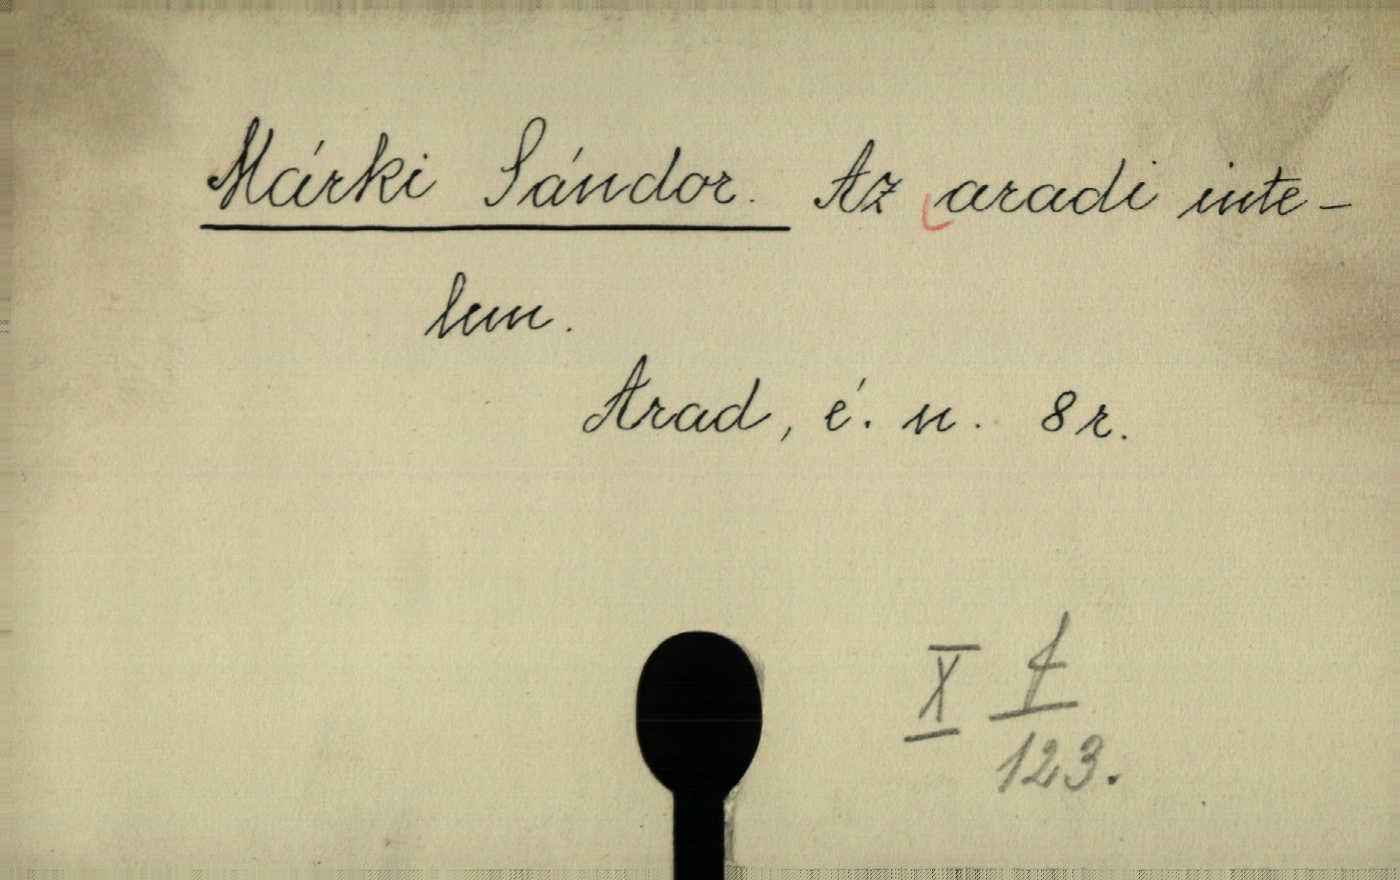 Márki Sándor. Az aradi inte-
lem.
Arad, é. n. 8r.
X
123.